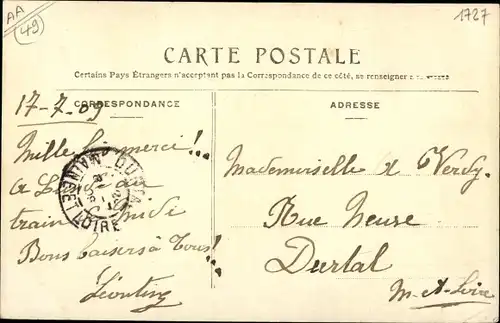 AA
(49)
1727
CARTE POSTALE
Certains Pays Étrangers n'acceptent pas la Correspondance de ce côté, se renseigner
CORRESPONDANCE
ADRESSE
17-7-09
Mille merci!!
a du
train midi
Bons baisers à Tous!!
Léontine
DURTAL
MAINE ET LOIRE
Mademoiselle A Verdy.
Rue Neuse
Durtal
M-et-Loire